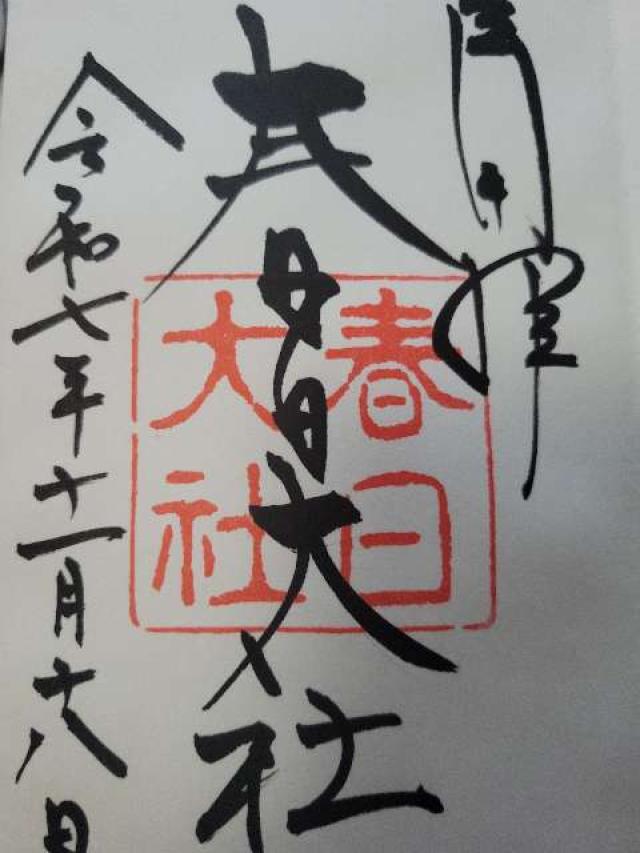 春日大社
春日
大社
令和七年十一月十八日